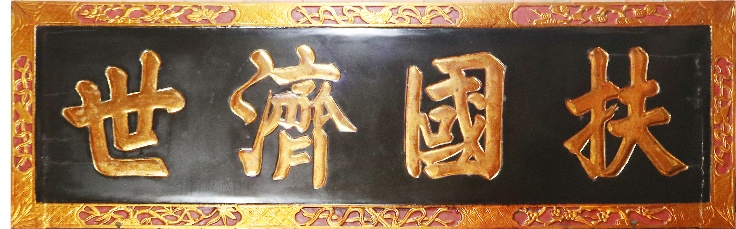 扶國濟世